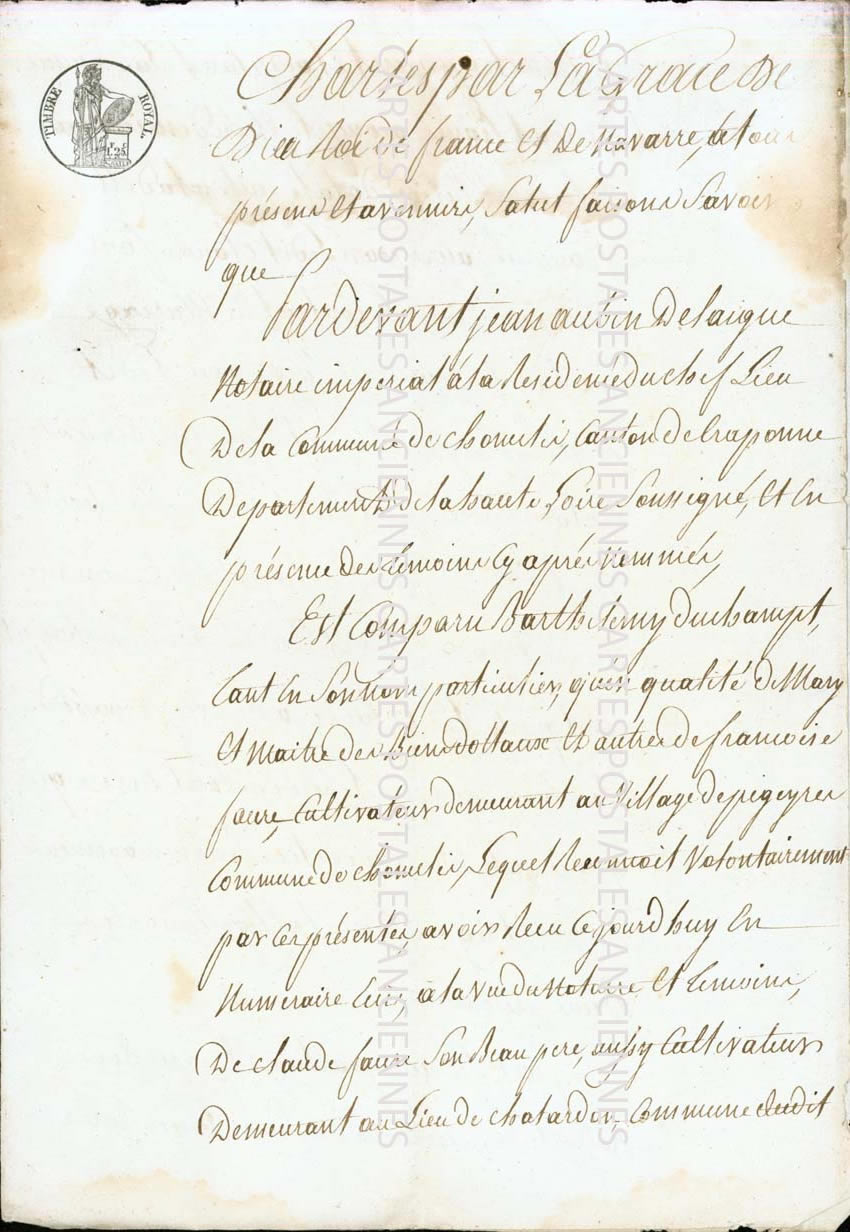 TIMBRE ROYAL.
1F 25c
Charles par La Grace De
Dieu Roi de france Et De Navarre, à tous
présens Et avennirs, Salut faisons Savoir
que
Pardevant jean aubin Delaigue
Notaire imperial à la Residence du chef Lieu
De la Commune de chomelix, Canton de Craponne
Departement de la haute Loire Soussigné, Et En
présence des temoins cy après nommés,
Est Comparu Barthelemy duchampt,
tant En Son Nom particulier, qu'en qualité de Mary
Et Maitre des Biens dottaux Et autres de francoise
faure, Cultivateur demeurant au Village de pigeyres
Commune de chomelix, Lequel Reconnoit Volontairement
par Ces présentes, avoir Recu Cejourd'huy En
Numeraire à la vue du Notaire Et temoins,
De Claude faure Son Beau pere, aussy Cultivateur
Demeurant au Lieu de chatardon, Commune dudit
CARTES POSTALES ANCIENNES CARTES POSTALES ANCIENNES
CARTES POSTALES ANCIENNES CARTES POSTALES ANCIENNES